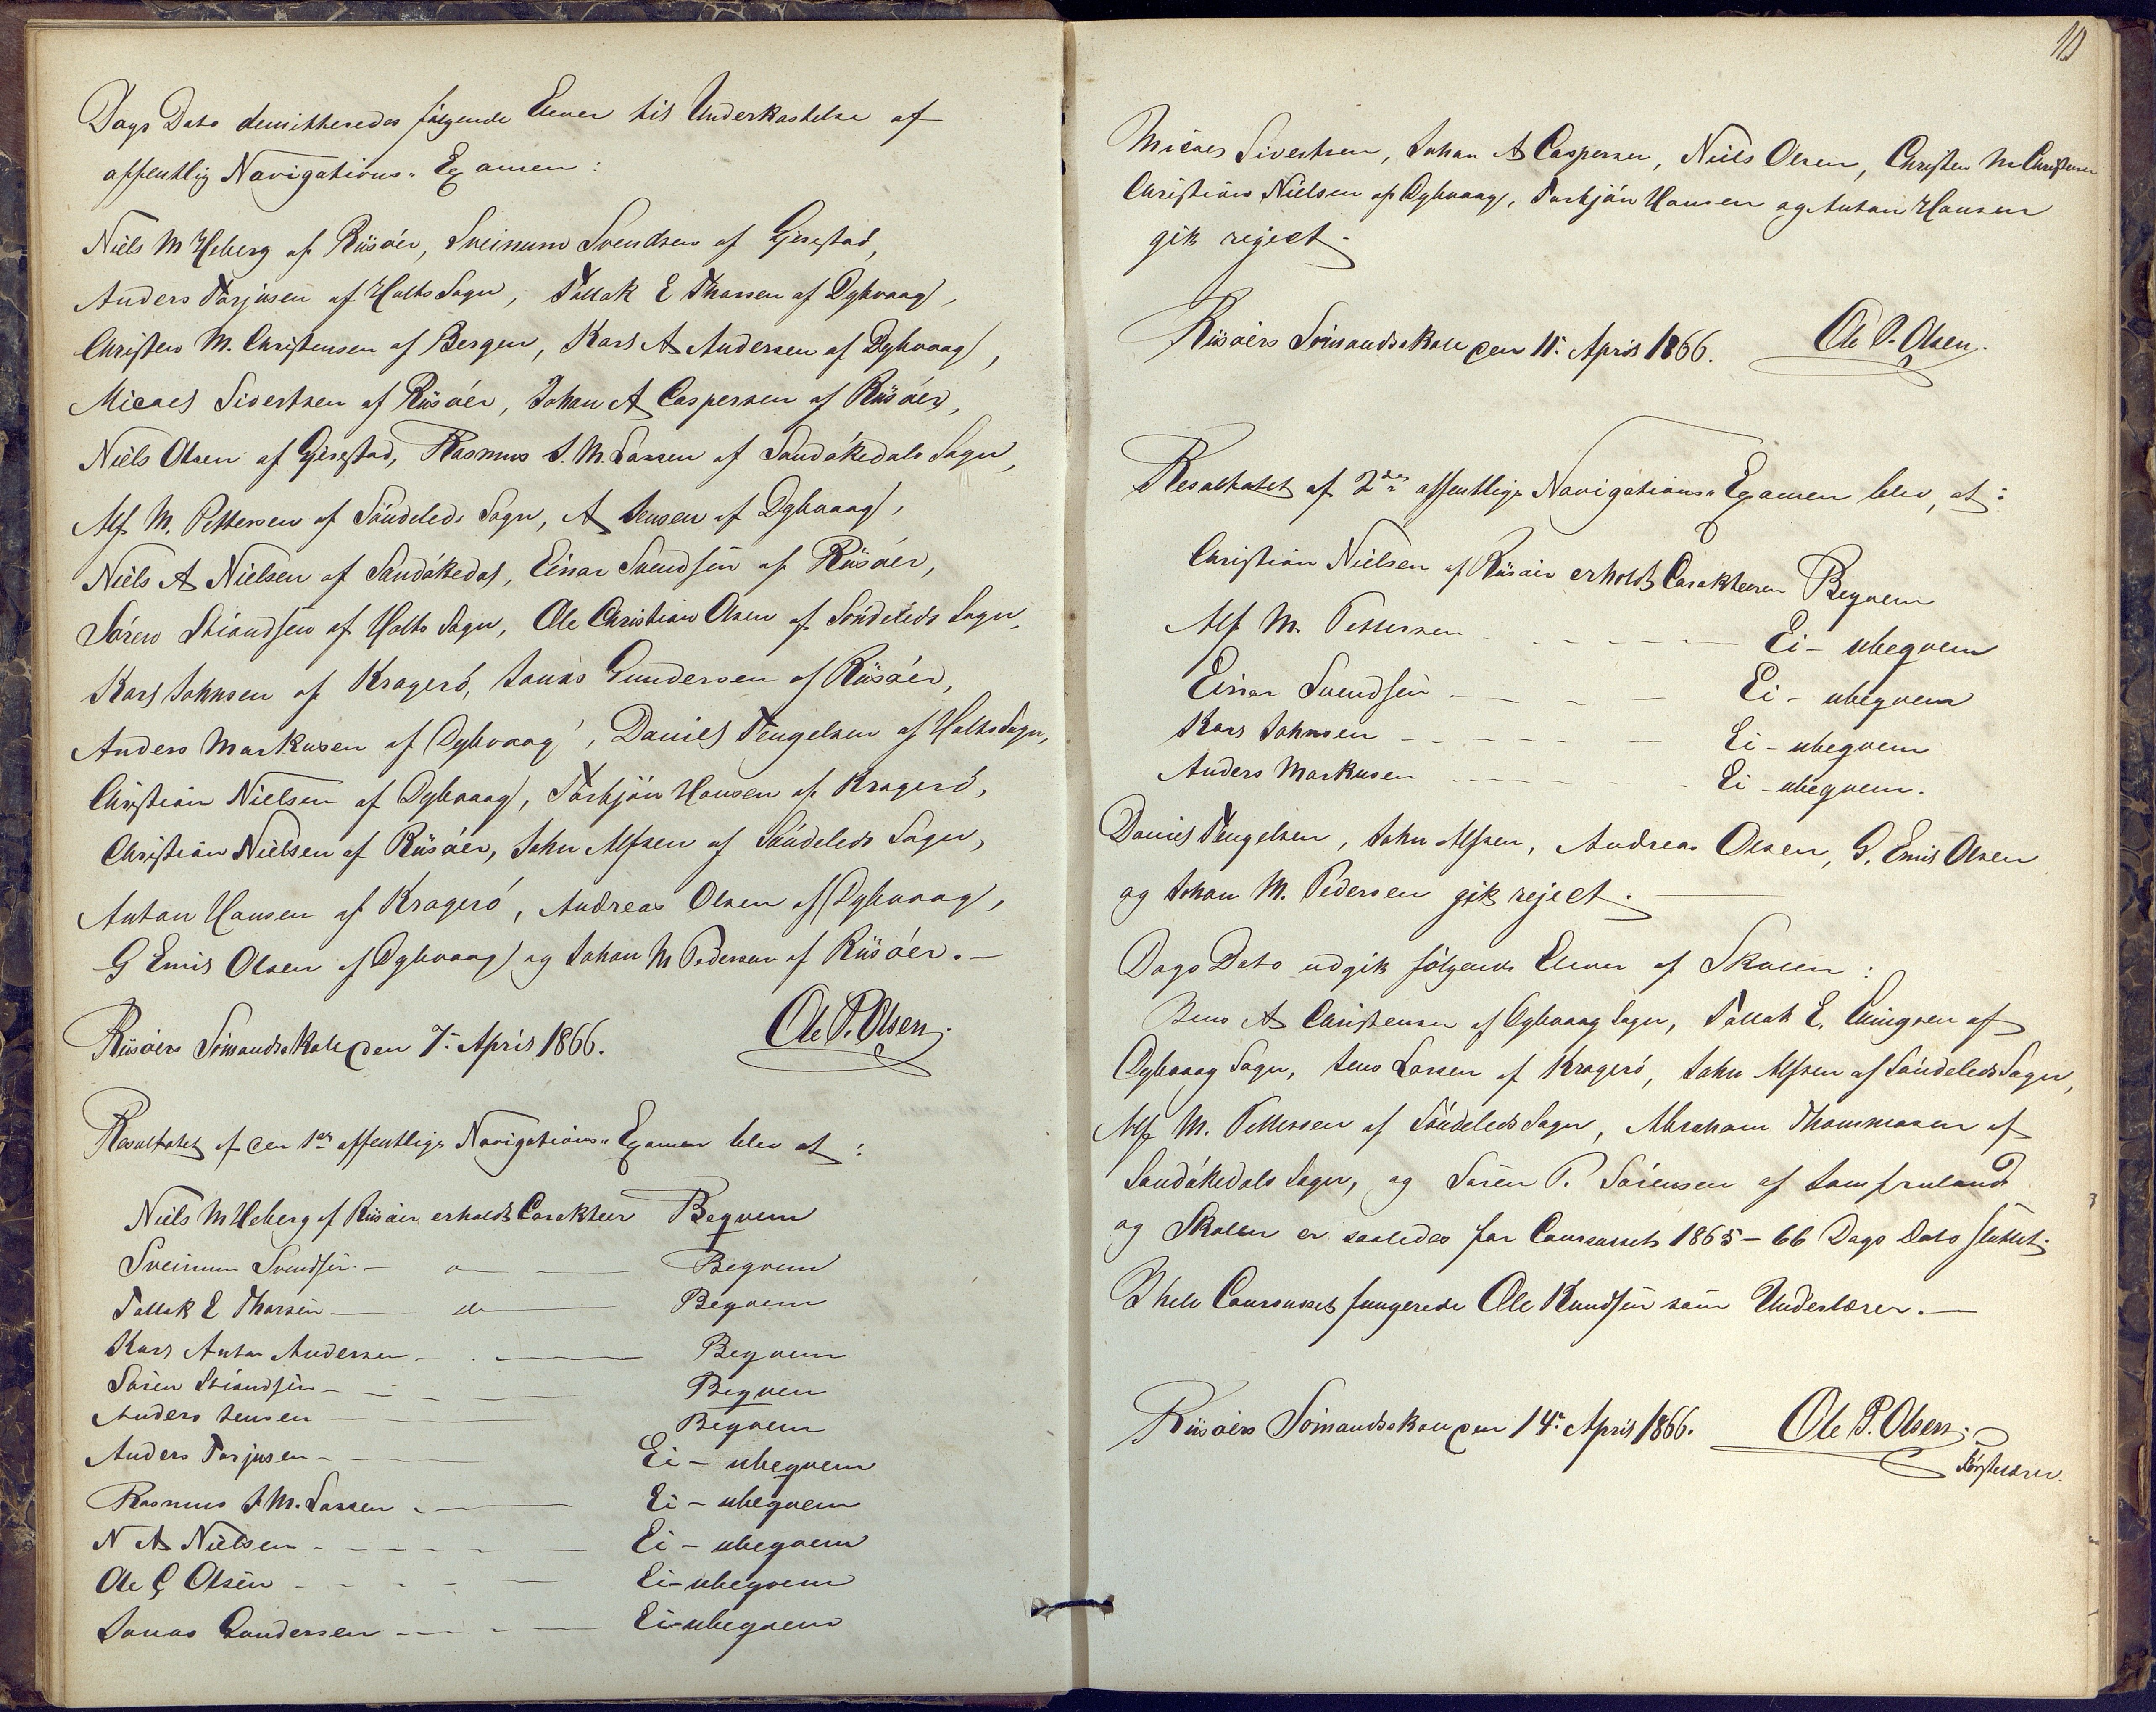 Dags Dato demitteredes følgende Elever til Underkastelse af
offentlig Navigations-Examen:
Niels M Heberg af Riisöer, Sveinum Svendsen af Gjerestad,
Anders Torjusen af Holts Sogn, Tallak E Thorsen af Dybvaag,
Christen M. Christensen af Bergen, Karl A Andersen af Dybvaag,
Micael Sivertsen af Riisöer, Johan A Caspersen af Riisöer,
Niels Olsen af Gjerestad, Rasmus S. M. Larsen af Sandökedals Sogn,
Alf M. Pettersen af Söndeleds Sogn, A Jensen af Dybvaag,
Niels A Nielsen af Sandökedal, Einar Svendsen af Riisöer,
Sören Stiandsen af Holts Sogn, Ole Christian Olsen af Söndeleds Sogn,
Karl Johnsen af Kragerö, Jonas Gundersen af Riisöer,
Anders Markusen af Dybvaag, Daniel Tengelsen af Holts Sogn,
Christian Nielsen af Dybvaag, Torbjön Hansen af Kragerö,
Christian Nielsen af Riisöer, John Alfsen af Söndeleds Sogn,
Anton Hansen af Kragerö, Andreas Olsen af Dybvaag,
G Emil Olsen af Dybvaag og Johan M Pedersen af Riisöer.—
Riisöers Sömandsskole den 7de April 1866. Ole P. Olsen.
Resultatet af den 1ste offentlige Navigations-Examen blev at:
Niels M Heberg af Riisöer erholdt Carakteer Beqvem
Sveinum Svendsen — o — Beqvem
Tallak E Thorsen — do — Beqvem
Karl Anton Andersen — Beqvem
Sören Stiandsen — Beqvem
Anders Jensen — Beqvem
Anders Torjusen — Ei-ubeqvem
Rasmus S M. Larsen — Ei-ubeqvem
N A Nielsen — Ei-ubeqvem
Ole C Olsen — Ei-ubeqvem
Jonas Gundersen — Ei-ubeqvem
10
Micael Sivertsen, Johan A Caspersen, Niels Olsen, Christen M Christensen
Christian Nielsen af Dybvaag, Torbjön Hansen og Anton Hansen
gik reject.
Riisöers Sömandsskole den 11te April 1866. Ole P. Olsen.
Resultatet af 2den offentlige Navigations-Examen blev, at:
Christian Nielsen af Riisöer erholdt Carakteren Beqvem
Alf M. Pettersen — Ei-ubeqvem
Einar Svendsen — Ei-ubeqvem
Karl Johnsen — Ei-ubeqvem
Anders Markusen — Ei-ubeqvem.
Daniel Tengelsen, John Alfsen, Andreas Olsen, G. Emil Olsen
og Johan M. Pedersen gik reject.—
Dags Dato udgik følgende Elever af Skolen:
Jens A Christensen af Dybvaag Sogn, Tallak E. af
Dybvaag Sogn, Jens Larsen af Kragerö, John Alfsen af Söndeleds Sogn,
Alf M. Pettersen af Söndeleds Sogn, Abraham Thommasen af
Sandökedals Sogn, og Sören P. Sörensen af Jomfruland
og Skolen er saaledes for Coursusset 1865-66 Dags Dato sluttet.
I hele Coursusset fungerede Ole Knudsen som Underlærer.—
Riisöers Sömandsskole den 14de April 1866. Ole P. Olsen.
Förstelærer.